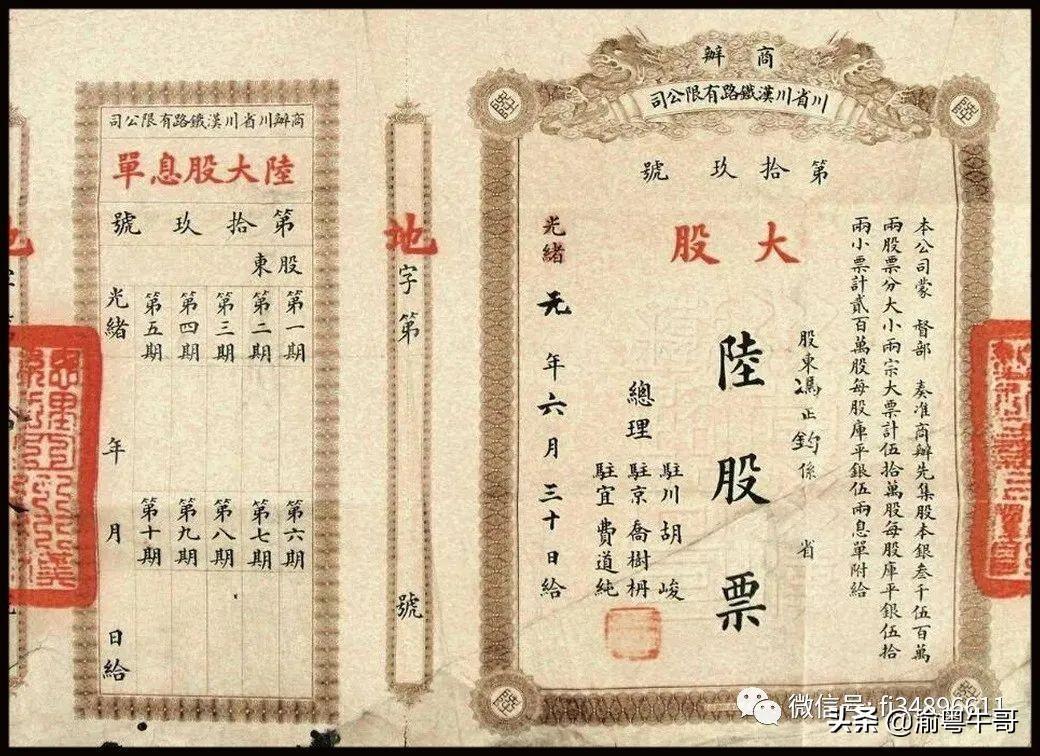 商辦
川省川漢鐵路有限公司
第拾玖號
大股
本公司蒙 督部 奏准商辦先集股本銀叁千伍百萬
兩股票分大小兩宗大票計伍拾萬股每股庫平銀伍拾
兩小票計貳百萬股每股庫平銀伍兩息單附給
股東馮 係 省
陸股票
駐川胡 峻
總理 駐京喬樹枬
駐宜費道純
光緒元年六月三十日給
地字第 號
商辦川省川漢鐵路有限公司
陸大股息單
第拾玖號
股東
第一期
第二期
第三期
第四期
第五期
第六期
第七期
第八期
第九期
第十期
光緒 年 月 日給
地
微信号: fj34896611
头条 @渝粤牛哥